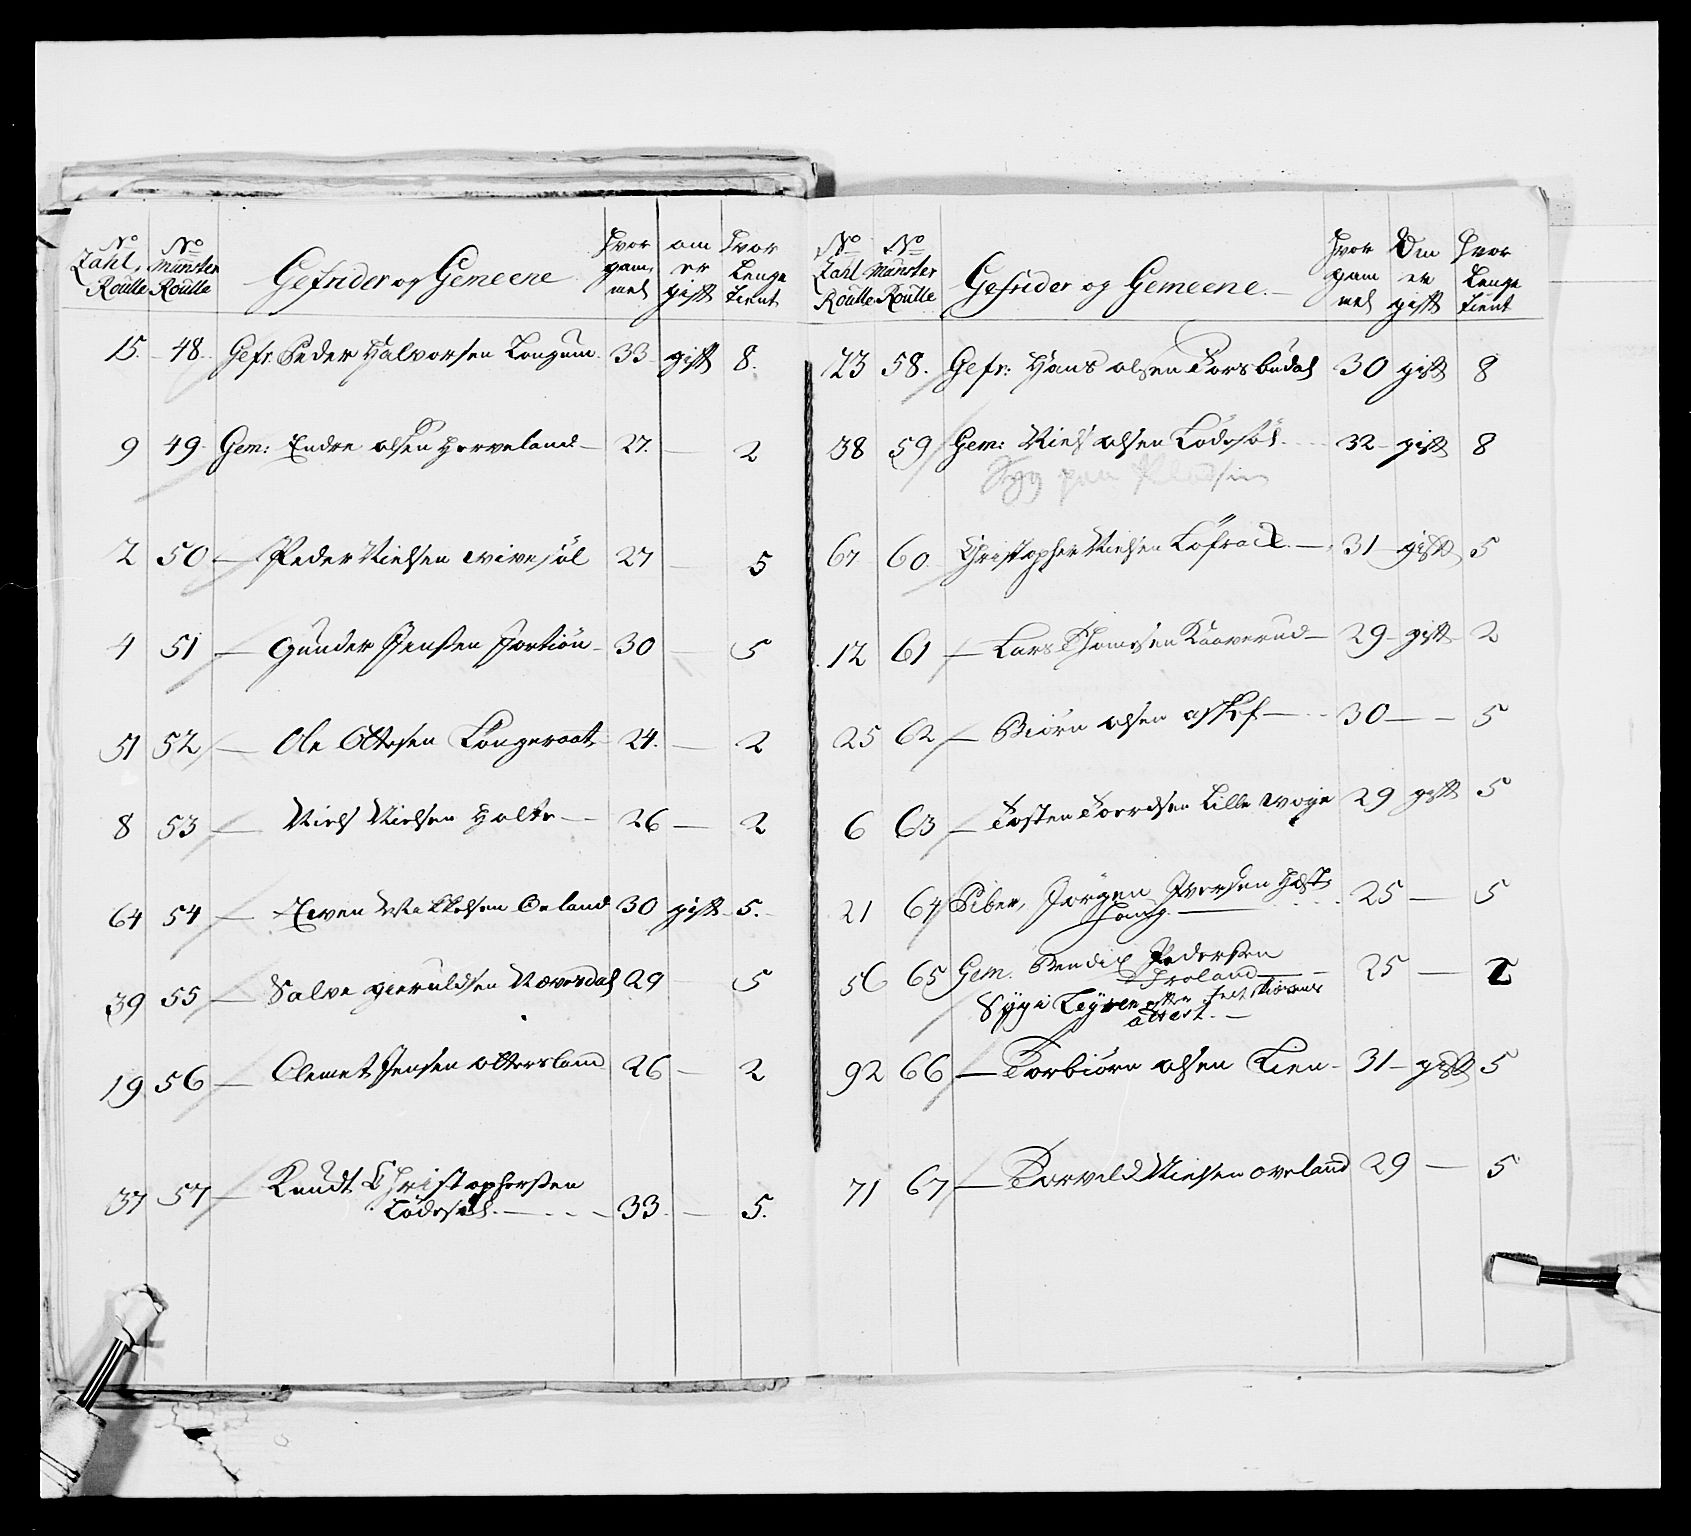 No Zahl Roulle | No Munster Roulle | Gefrider og Gemeene | Hvor gam mel | om er gift | Hvor Lenge tient
15. 48. Gefr. Peder Halvorsen Longum 33 gift 8.
9 49. Gem: Endre olsen Herveland 27. — 2
2 50 — Peder Nielsen Wivesöl 27 — 5
4 51 — Gunder Jensen 30 — 5
51 52 — Ole Ottesen Longeraat 24. — 2
8 53 — Niels Nielsen Holte 26 — 2
64 54 — Even Mikkelsen Oeland 30 gift 5.
39 55 — Salve gieruldsen Næversdal 29 — 5
19 56 — Clemet Jensen Ottersland 26 — 2
37 57 — Knudt Christophersen
Lödesöl. 33. — 5.
No Zahl Roulle | No Munster Roulle | Gefrider og Gemeene. | Hvor gam mel | Om er gift | Hvor Lenge tient
23 58. Gefr: Hans olsen Torsbudal 30 gift 8
38 59 Gem: Niels olsen Lödesöl 32 gift 8
Syg paa
67 60. Christopher Nielsen 31 gift 5
12 61 — Lars Thomesen Kaaverud 29 gift 2
25 62 — Biörn olsen 30 — 5
6 63 — Tosten Tordsen Lille Woje 29 gift 5
21 64 Piber, Jörgen Iversen
Houg. 25 — 5
56 65 Gem. Bendix Pedersen
Froland 25 — 2
Syg i Leyren efter
attest.
92 66 — Torbiörn olsen Lien 31 gift 5
71 67 — Torvild Nielsen oveland 29 — 5